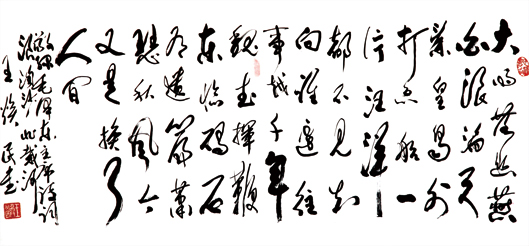 大雨落幽燕
白浪滔天
秦皇岛外
打鱼船一
片汪洋
都不见知
向谁边往
事越千年
魏武挥鞭
东临碣石
有遗篇萧
瑟秋风今
又是换了
人间
敬録毛泽东主席诗词
浪淘沙北戴河
王焕民书